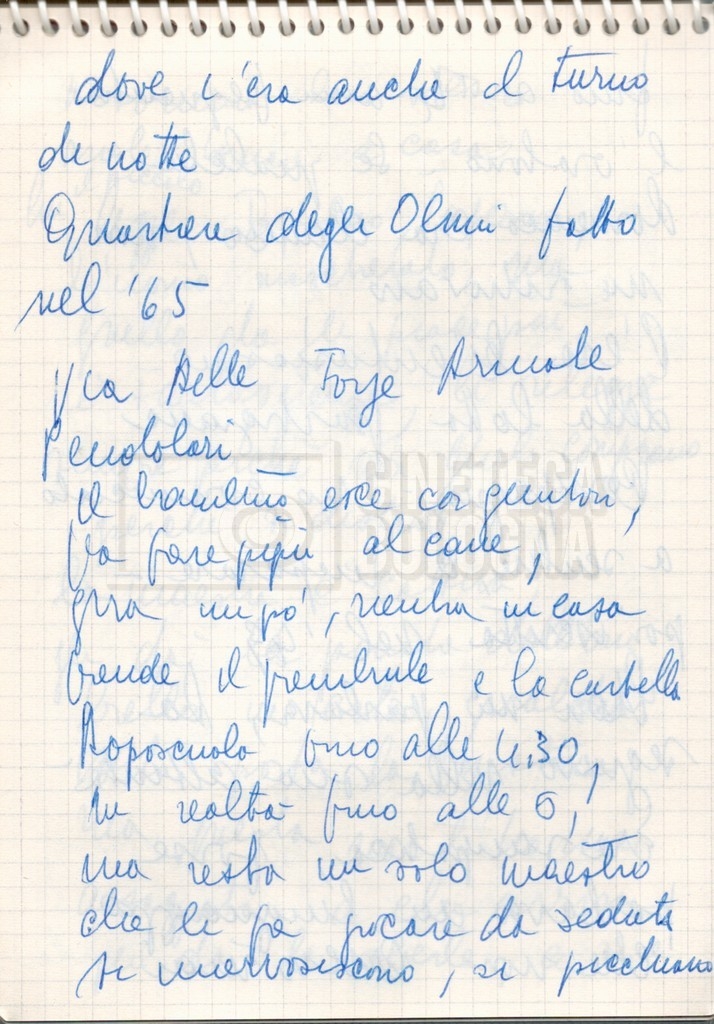 dove c'era anche il turno
di notte
Quartiere degli Olmi fatto
nel '65
Via delle Forze Armate
Pendolari
Il bambino esce coi genitori,
fa fare pipì al cane,
gira un po', rientra in casa
prende il grembiule e la cartella
Doposcuola fino alle 4,30,
in realtà fino alle 5,
ma resta un solo maestro
che li fa giocare da seduti
si innervosiscono, si picchiano
CINETECA
BOLOGNA